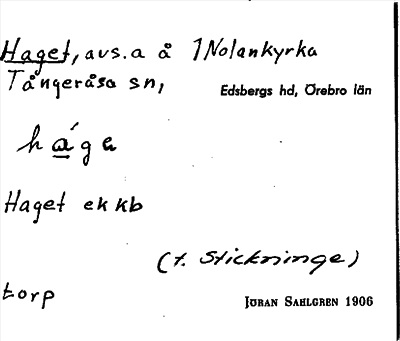 Haget, avs. a å 1 Nolankyrka
Tångeråsa sn,
Edsbergs hd, Örebro län
hága
Haget ekkb
(t. Stickninge)
torp
Jöran Sahlgren 1906